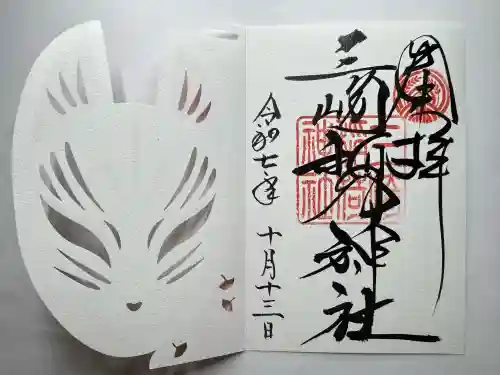 奉拝
三崎稲荷神社
令和七年 十月十三日